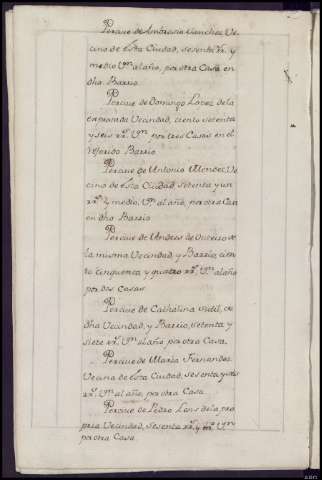 Percive de Ambrosio Sanchez Ve
cino de esta Ciudad, sesenta rr.s y
medio V.on al año, por otra Casa en
dho. Barrio.
Percive de Domingo Lopez de la
expresada Vecindad, ciento setenta
y seis rr.s V.on por tres Casas en el
referido Barrio.
Percive de Antonio Mendez, Ve
cino de esta Ciudad setenta y un
rr.s y medio V.on al año, por otra Casa
en dho. Barrio
Percive de Andres de Outeiro de
la misma Vecindad, y Barrio, cien
to cinquenta y quatro rr.s V.on al año
por dos Casas.
Percive de Cathalina Sutil, en
dha Vecindad, y Barrio, setenta y
siete rr.s V.on al año, por otra Casa.
Percive de Maria Fernandez
Vecina de esta Ciudad, sesenta y seis
rr.s V.on al año, por otra Casa.
Percive de Pedro Lens de la pro
pria Vecindad, sesenta rr.s V.on
por otra Casa.